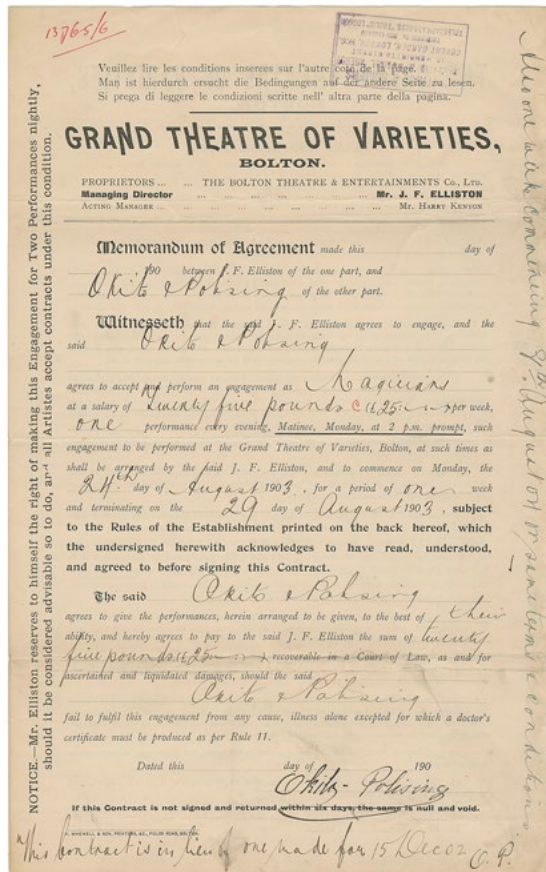 13765/6
Veuillez lire les conditions inserces sur l'autre coté de la page.
Man ist hierdurch ersucht die Bedingungen auf der andere Seite zu lesen.
Si prega di leggere le condizioni scritte nell' altra parte della pagina.
GRAND THEATRE OF VARIETIES,
BOLTON.
PROPRIETORS ... ... THE BOLTON THEATRE & ENTERTAINMENTS Co., LTD.
Managing Director ... ... ... ... ... Mr. J. F. ELLISTON
ACTING MANAGER ... ... ... ... ... ... Mr. HARRY KENYON
Memorandum of Agreement made this day of
190 between J. F. Elliston of the one part, and
Okito & Pohsing of the other part.
Witnesseth that the said J. F. Elliston agrees to engage, and the
said Okito & Pohsing
agrees to accept and perform an engagement as Magicians
at a salary of Twenty five pounds £25 per week,
one performance every evening, Matinee, Monday, at 2 p.m. prompt, such
engagement to be performed at the Grand Theatre of Varieties, Bolton, at such times as
shall be arranged by the said J. F. Elliston, and to commence on Monday, the
24th day of August 1903, for a period of one week
and terminating on the 29 day of August 1903, subject
to the Rules of the Establishment printed on the back hereof, which
the undersigned herewith acknowledges to have read, understood,
and agreed to before signing this Contract.
The said Okito & Pohsing
agrees to give the performances, herein arranged to be given, to the best of their
ability, and hereby agrees to pay to the said J. F. Elliston the sum of twenty
five pounds £25 recoverable in a Court of Law, as and for
ascertained and liquidated damages, should the said
Okito & Pohsing
fail to fulfil this engagement from any cause, illness alone excepted for which a doctor's
certificate must be produced as per Rule 11.
Dated this day of 190
Okito - Pohsing
If this Contract is not signed and returned within six days, the same is null and void.
This contract is in lieu of one made for 15 Dec 02 O.P.
NOTICE.—Mr. Elliston reserves to himself the right of making this Engagement for Two Performances nightly,
should it be considered advisable so to do, and all Artistes accept contracts under this condition.
Also one week commencing August on same terms & conditions